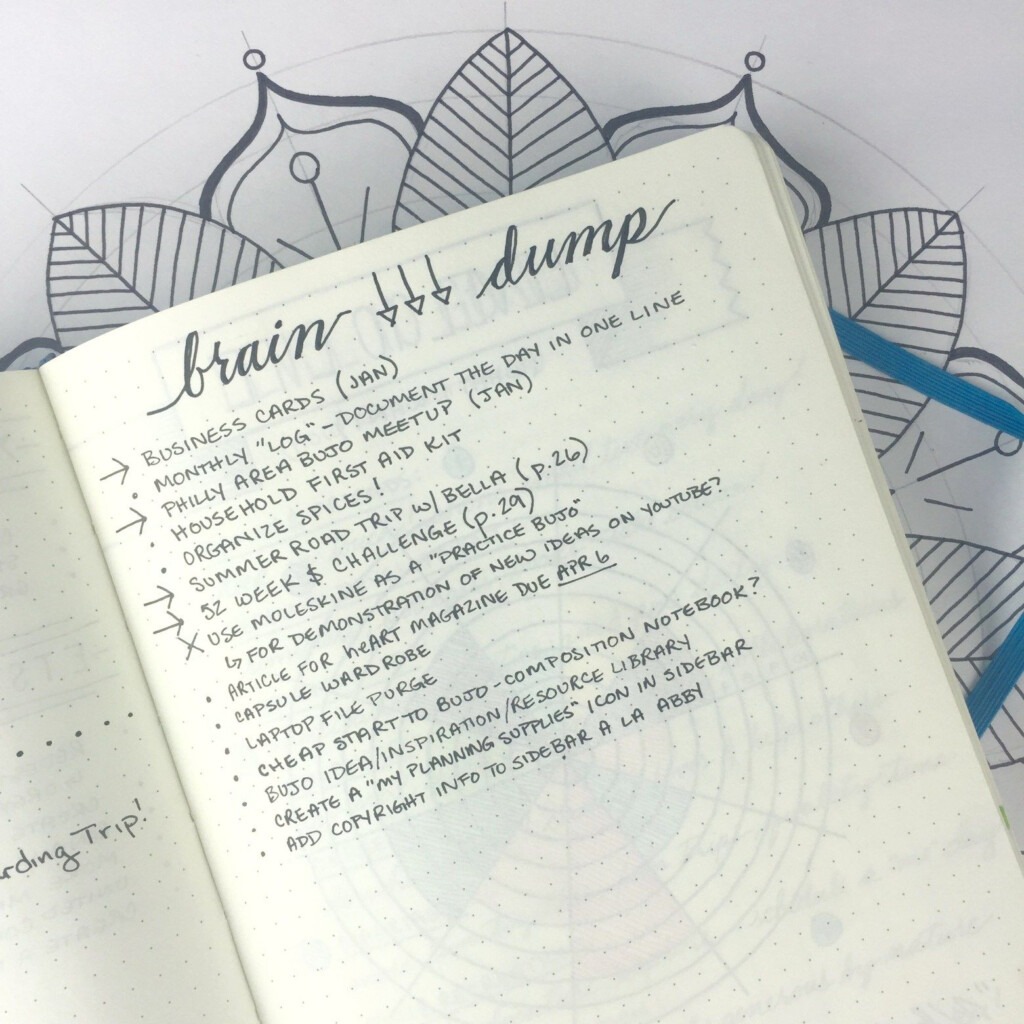 brain dump
→ BUSINESS CARDS (JAN)
• MONTHLY "LOG" - DOCUMENT THE DAY IN ONE LINE
→ PHILLY AREA BUJO MEETUP (JAN)
• HOUSEHOLD FIRST AID KIT
• ORGANIZE SPICES!
→ SUMMER ROAD TRIP W/ BELLA (p.26)
→ 52 WEEK $ CHALLENGE (p.29)
X USE MOLESKINE AS A "PRACTICE BUJO"
↳ FOR DEMONSTRATION OF NEW IDEAS ON YOUTUBE?
• ARTICLE FOR heART MAGAZINE DUE APR 6
• CAPSULE WARDROBE
• LAPTOP FILE PURGE
• CHEAP START TO BUJO - COMPOSITION NOTEBOOK?
• BUJO IDEA/INSPIRATION/RESOURCE LIBRARY
• CREATE A "MY PLANNING SUPPLIES" ICON IN SIDEBAR
• ADD COPYRIGHT INFO TO SIDEBAR A LA ABBY
Trip!